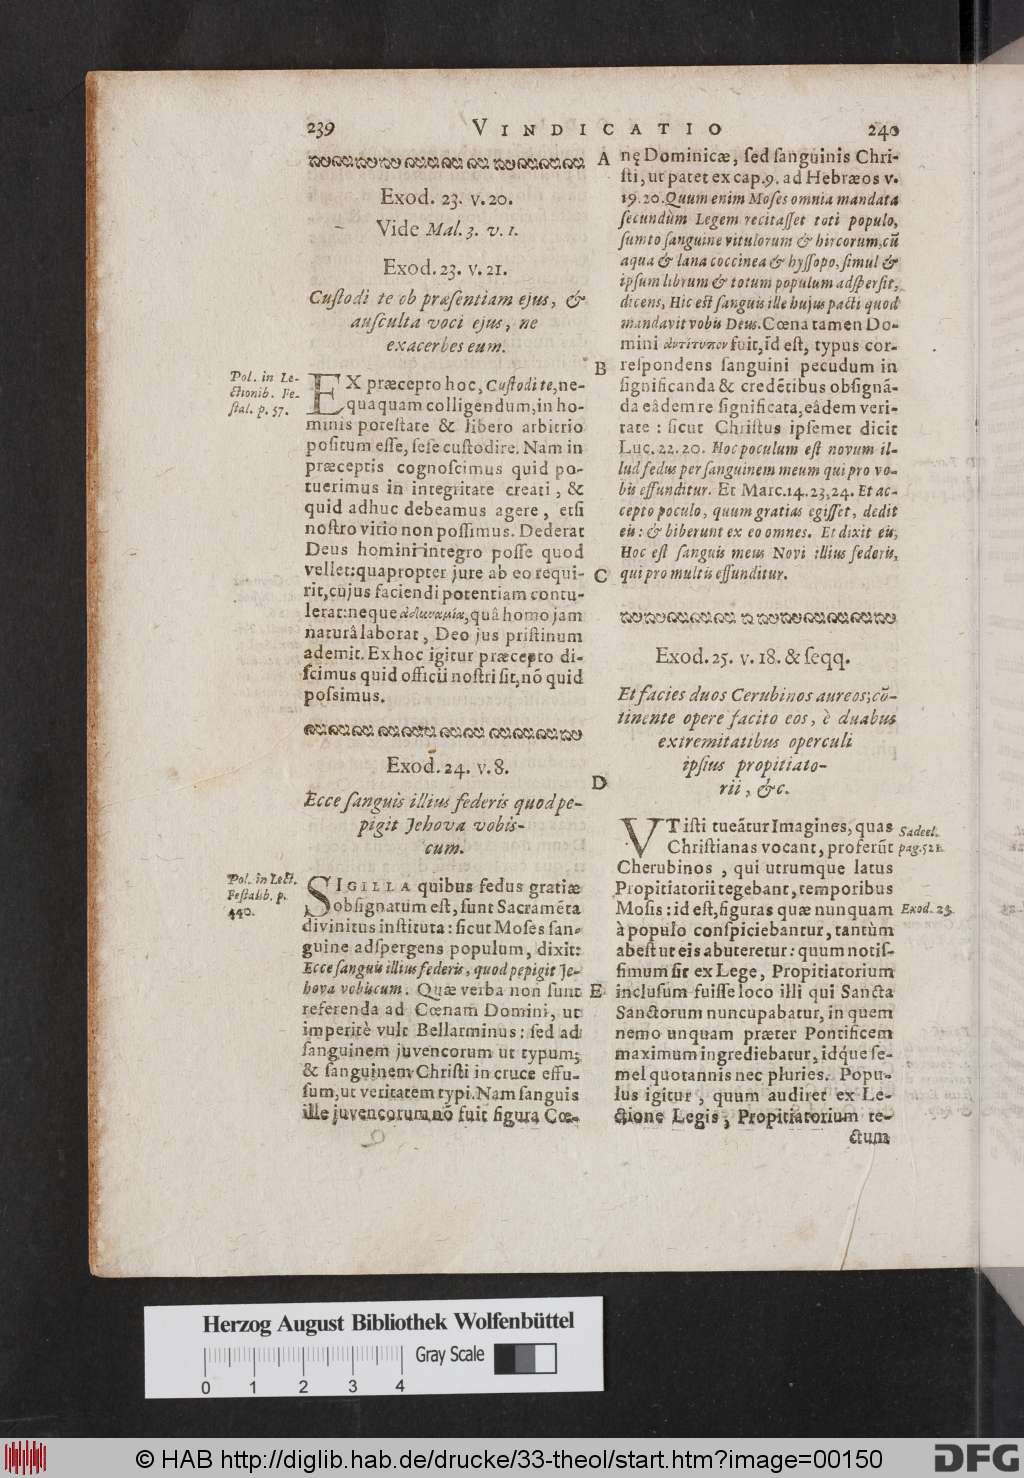 239 VINDICATIO 240
Exod. 23. v. 20.
Vide Mal. 3. v. 1.
Exod. 23. v. 21.
Custodi te ob præsentiam ejus, &
ausculta voci ejus, ne
exacerbes eum.
Pol. in Le-
ctionib. Fe-
stal. p. 57.
EX præcepto hoc, Custodi te, ne-
quaquam colligendum, in ho-
minis potestate & libero arbitrio
positum esse, sese custodire. Nam in
præceptis cognoscimus quid po-
tuerimus in integritate creati, &
quid adhuc debeamus agere, etsi
nostro vitio non possimus. Dederat
Deus homini integro posse quod
vellet: quapropter jure ab eo requi-
rit, cujus faciendi potentiam contu-
lerat: neque ἀδυναμία, quâ homo jam
naturâ laborat, Deo jus pristinum
ademit. Ex hoc igitur præcepto di-
scimus quid officii nostri sit, nõ quid
possimus.
Exod. 24. v. 8.
Ecce sanguis illius federis quod pe-
pigit Jehova vobis-
cum.
Pol. in Lect.
Festalib. p.
440.
SIGILLA quibus fedus gratiæ
obsignatum est, sunt Sacramẽta
divinitus instituta: sicut Moses san-
guine adspergens populum, dixit:
Ecce sanguis illius federis, quod pepigit Je-
hova vobiscum. Quæ verba non sunt
referenda ad Cœnam Domini, ut
imperitè vult Bellarminus: sed ad
sanguinem juvencorum ut typum;
& sanguinem Christi in cruce effu-
sum, ut veritatem typi. Nam sanguis
ille juvencorum nõ fuit figura Cœ-
A
nę Dominicæ, sed sanguinis Chri-
sti, ut patet ex cap. 9. ad Hebræos v.
19. 20. Quum enim Moses omnia mandata
secundùm Legem recitasset toti populo,
sumto sanguine vitulorum & hircorum, cũ
aqua & lana coccinea & hyssopo, simul &
ipsum librum & totum populum adspersit,
dicens, Hic est sanguis ille hujus pacti quod
mandavit vobis Deus. Cœna tamen Do-
mini ἀντίτυπον fuit, id est, typus cor-
B
respondens sanguini pecudum in
significanda & credẽtibus obsignã-
da eâdem re significata, eâdem veri-
tate: sicut Christus ipsemet dicit
Luc. 22. 20. Hoc poculum est novum il-
lud fedus per sanguinem meum qui pro vo-
bis effunditur. Et Marc. 14. 23, 24. Et ac-
cepto poculo, quum gratias egisset, dedit
eis: & biberunt ex eo omnes. Et dixit eis,
Hoc est sanguis meus Novi illius federis,
C
qui pro multis effunditur.
Exod. 25. v. 18. & seqq.
Et facies duos Cerubinos aureos; cõ-
tinente opere facito eos, è duabus
extremitatibus operculi
ipsius propitiato-
D
rii, &c.
VT isti tueãtur Imagines, quas
Christianas vocant, proferũt
Sadeel.
pag. 521.
Cherubinos, qui utrumque latus
Propitiatorii tegebant, temporibus
Mosis: id est, figuras quæ nunquam
Exod. 25.
à populo conspiciebantur, tantùm
abest ut eis abuteretur: quum notis-
simum sit ex Lege, Propitiatorium
E
inclusum fuisse loco illi qui Sancta
Sanctorum nuncupabatur, in quem
nemo unquam præter Pontificem
maximum ingrediebatur, idq́ue se-
mel quotannis nec pluries. Popu-
lus igitur, quum audiret ex Le-
ctione Legis, Propitiatorium te-
ctum
Herzog August Bibliothek Wolfenbüttel
Gray Scale
0 1 2 3 4
© HAB http://diglib.hab.de/drucke/33-theol/start.htm?image=00150
DFG